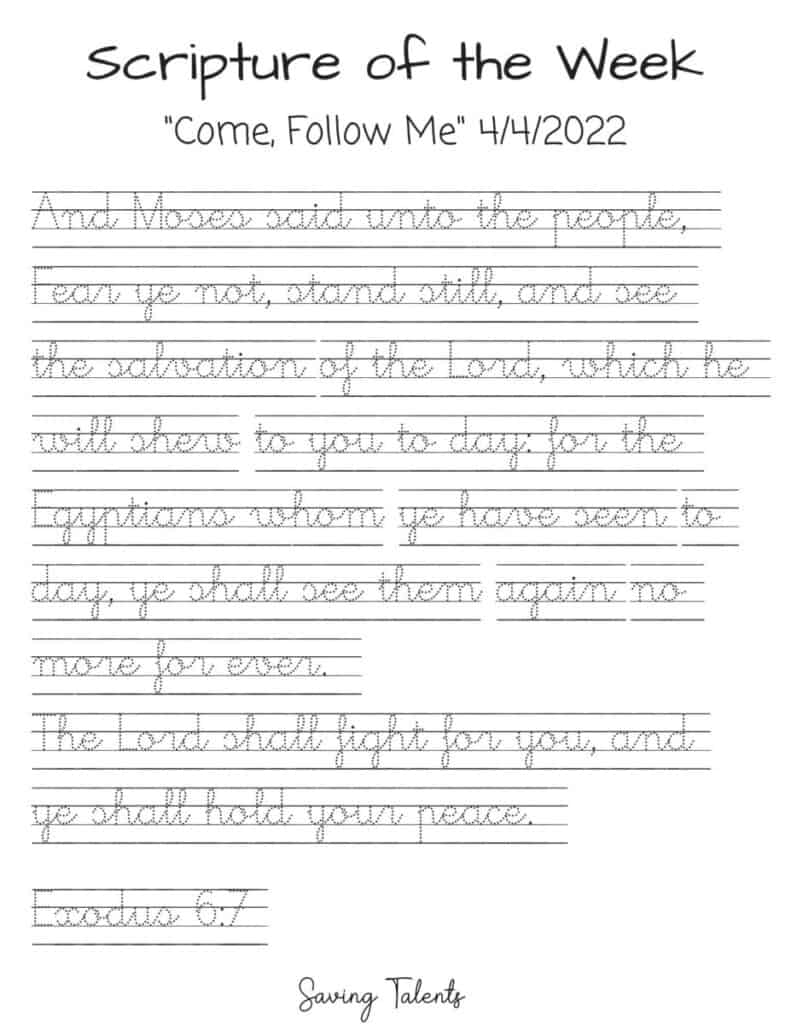 Scripture of the Week
"Come, Follow Me" 4/4/2022
And Moses said unto the people,
Fear ye not, stand still, and see
the salvation of the Lord, which he
will shew to you to day: for the
Egyptians whom ye have seen to
day, ye shall see them again no
more for ever.
The Lord shall fight for you, and
ye shall hold your peace.
Exodus 6:7
Saving Talents